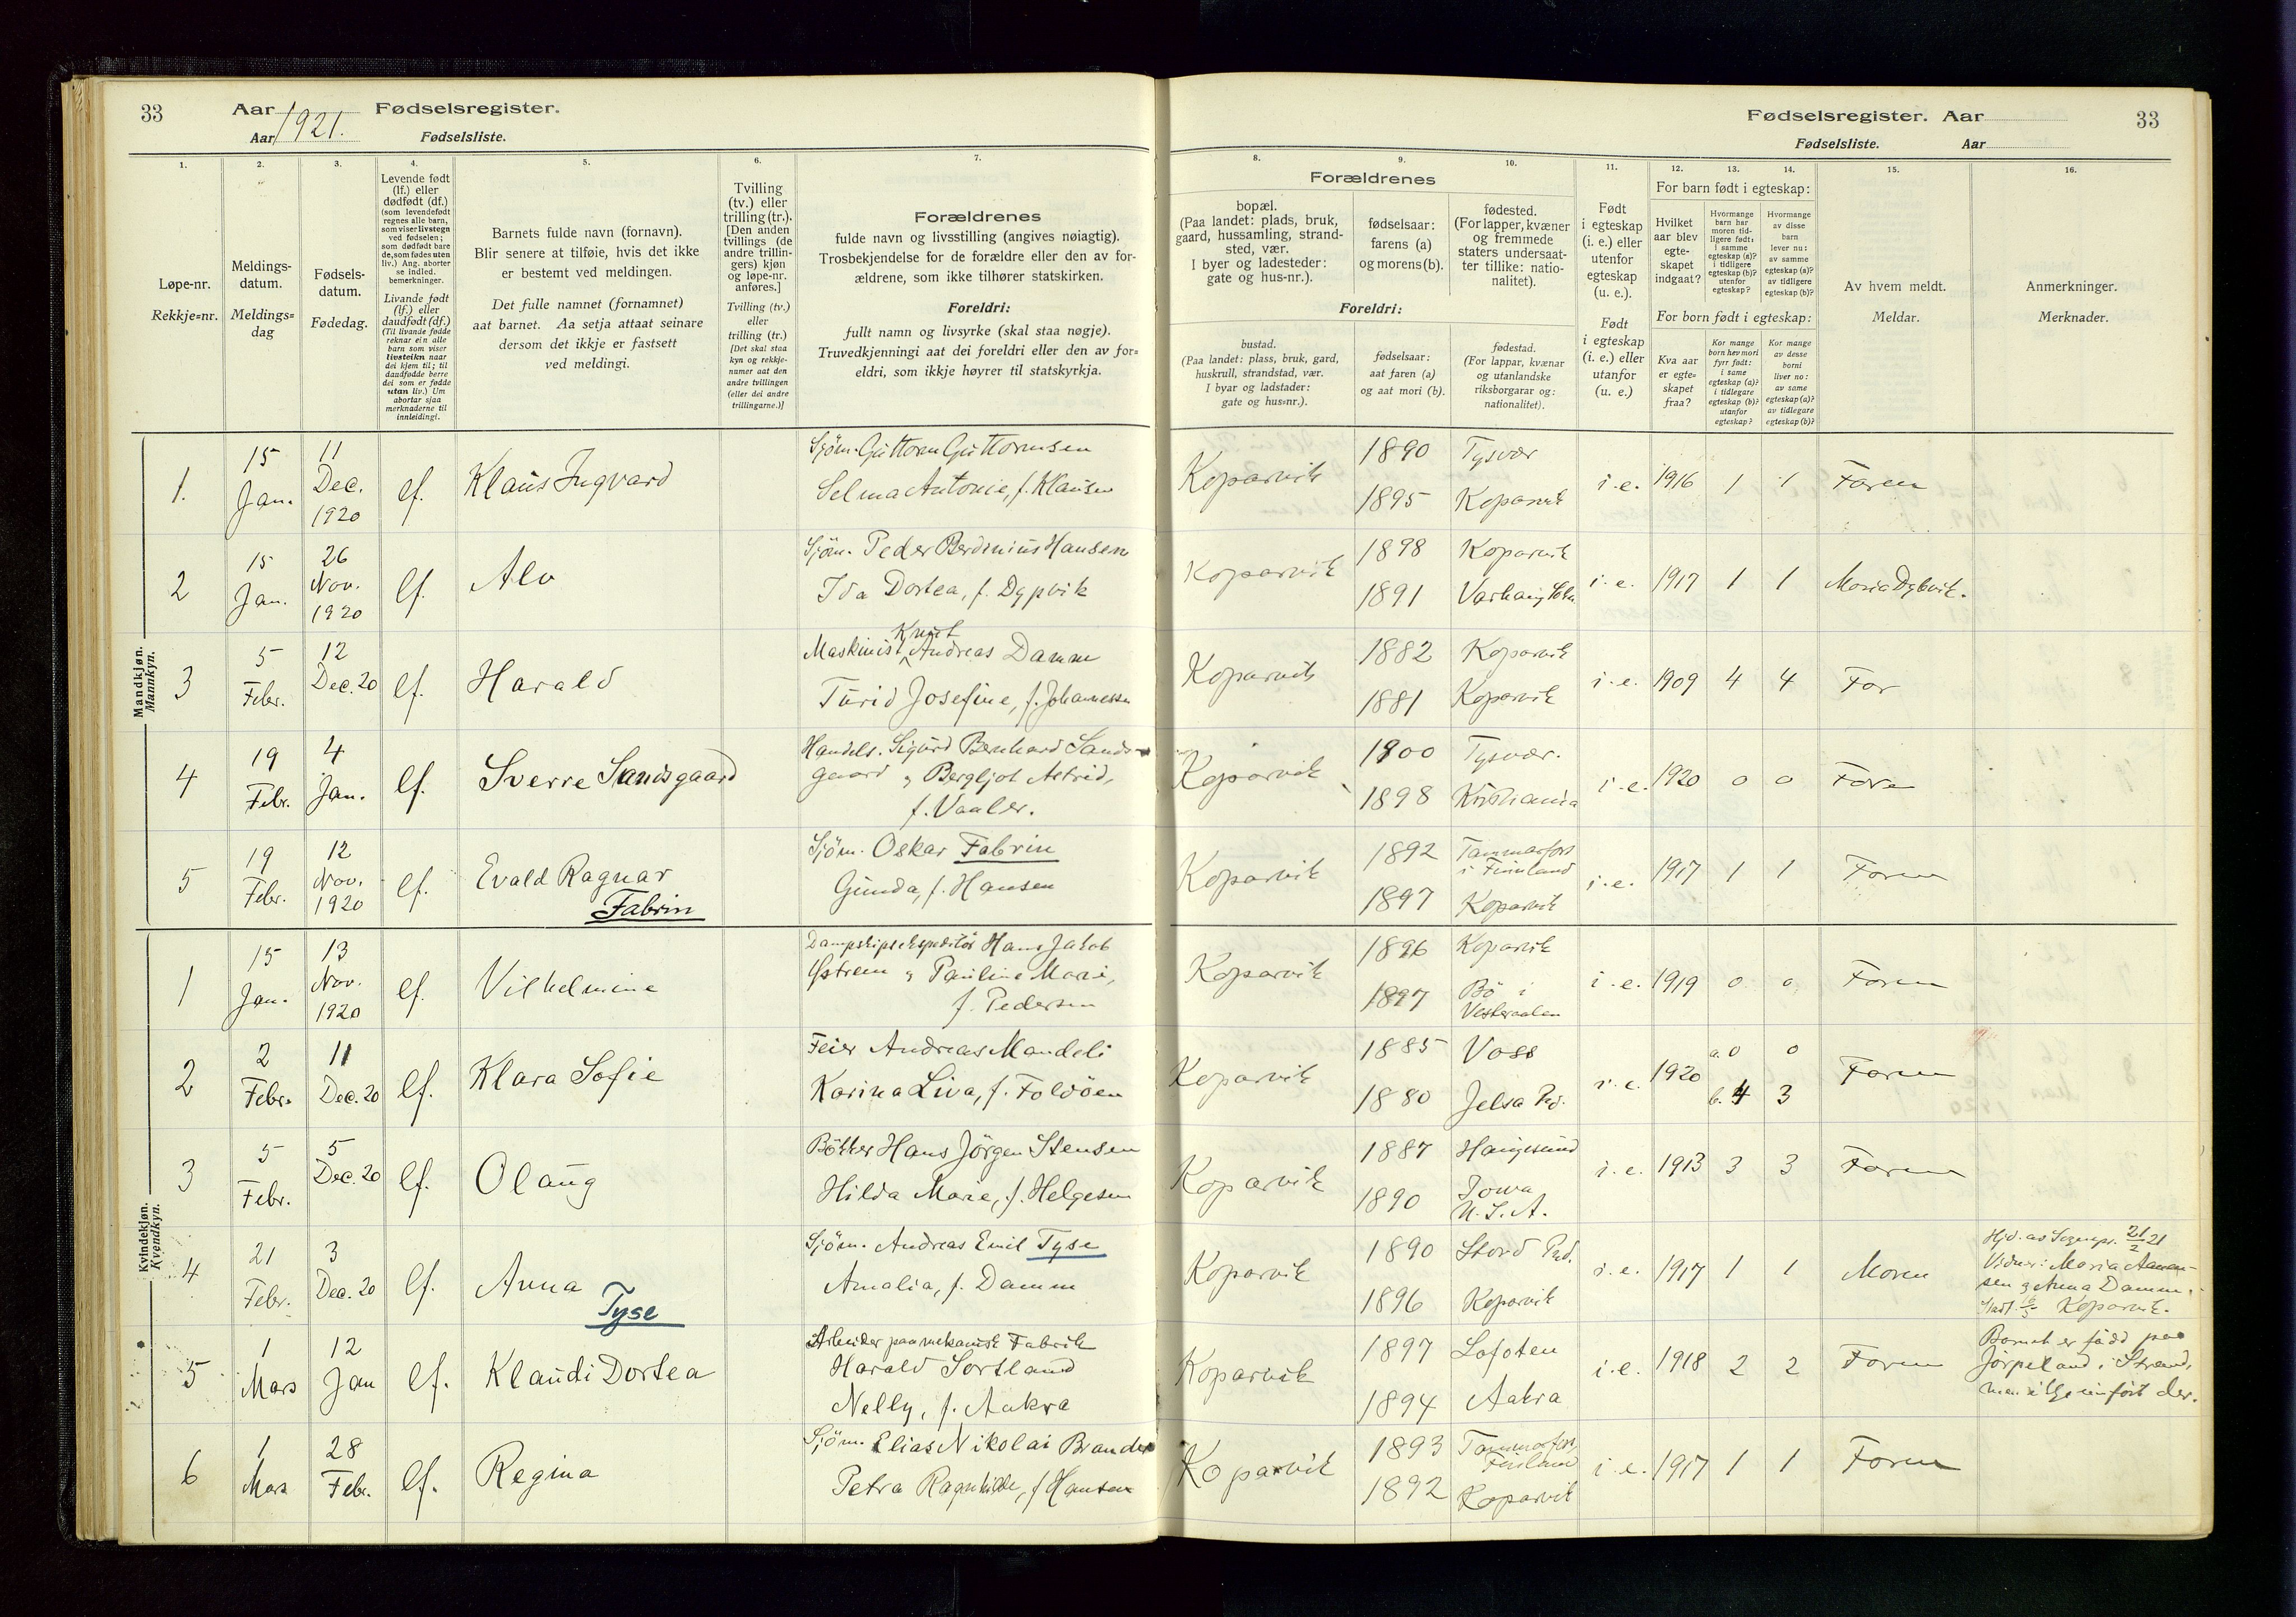 33
Aar 1921. Fødselsregister.
Aar Fødselsliste.
Fødselsregister. Aar
33
Fødselsliste. Aar
1.
Løpe-nr.
Rekkje-nr.
2.
Meldings-
datum.
Meldings-
dag
3.
Fødsels-
datum.
Fødedag.
4.
Levende født
(lf.) eller
dødfødt (df.)
(som levendefødt
regnes alle barn,
som viser livstegn
ved fødselen;
som dødfødt bare
de, som fødes uten
liv.) Ang. aborter
se indled.
bemerkninger.
Livande født
(lf.) eller
daudfødt (df.)
(Til livande fødde
reknar ein alle
barn som viser
livsteikn naar
dei kjem til; til
daudfødde berre
dei som er fødde
utan liv.) Um
abortar sjaa
merknaderne til
innleidingi.
5.
Barnets fulde navn (fornavn).
Blir senere at tilføie, hvis det ikke
er bestemt ved meldingen.
Det fulle namnet (fornamnet)
aat barnet. Aa setja attaat seinare
dersom det ikkje er fastsett
ved meldingi.
6.
Tvilling
(tv.) eller
trilling (tr.).
[Den anden
tvillings (de
andre trillin-
gers) kjøn
og løpe-nr.
anføres.]
Tvilling (tv.)
eller
trilling (tr.)
[Det skal staa
kyn og rekkje-
numer aat den
andre tvillingen
(eller dei andre
trillingarne.)]
7.
Forældrenes
fulde navn og livsstilling (angives nøiagtig).
Trosbekjendelse for de forældre eller den av for-
ældrene, som ikke tilhører statskirken.
Foreldri:
fullt namn og livsyrke (skal staa nøgje).
Truvedkjenningi aat dei foreldri eller den av for-
eldri, som ikkje høyrer til statskyrkja.
Forældrenes
8.
bopæl.
(Paa landet: plads, bruk,
gaard, hussamling, strand-
sted, vær.
I byer og ladesteder:
gate og hus-nr.).
9.
fødselsaar:
farens (a)
og morens (b).
10.
fødested.
(For lapper, kvæner
og fremmede
staters undersaat-
ter tillike: natio-
nalitet).
Foreldri:
bustad.
(Paa landet: plass, bruk, gard,
huskrull, strandstad, vær.
I byar og ladstader:
gate og hus-nr.).
fødselsaar:
aat faren (a)
og aat mori (b).
fødestad.
(For lappar, kvænar
og utanlandske
riksborgarar og:
nationalitet).
11.
Født
i egteskap
(i. e.) eller
utenfor
egteskap
(u. e.).
Født
i egteskap
(i. e.) eller
utanfor
(u. e.)
12. 13. 14.
For barn født i egteskap:
Hvilket
aar blev
egte-
skapet
indgaat?
Hvormange
barn har
moren tid-
ligere født:
i samme
egteskap (a)?
i tidligere
egteskap (b)?
utenfor
egteskap?
Hvormange
av disse
barn
lever nu:
av samme
egteskap (a)?
av tidligere
egteskap (b)?
For born født i egteskap:
Kva aar
er egte-
skapet
fraa?
Kor mange
born hev mori
fyrr født:
i same
egteskap (a)?
i tidlegare
egteskap (b)?
utanfor
egteskap?
Kor mange
av desse
borni
liver no:
av same
egteskap (a)?
av tidlegare
egteskap (b)?
15.
Av hvem meldt.
Meldar.
16.
Anmerkninger.
Merknader.
Mandkjøn.
Mannkyn.
1. 15 Jan. 11 Dec. 1920 lf. Klaus Ingvard Sjöm. Guttorm Guttormsen
Selma Antonie, f. Klausen Koparvik 1890 Tysvær
1895 Koparvik i.e. 1916 1 1 Faren
2 15 Jan. 26 Nov. 1920 lf. Alv Sjöm. Peder Berdinius Hansen
Ida Dortea, f. Dypvik Koparvik 1898 Koparvik
1891 i.e. 1917 1 1 Maria Dybvik.
3 5 Febr. 12 Dec. 20 lf. Harald Maskinist Knut Andreas Damm
Turid Josefine, f. Johannessen Koparvik 1882 Koparvik
1881 Koparvik i.e. 1909 4 4 Far
4 19 Febr. 4 Jan. lf. Sverre Sandsgaard Handels. Sigurd Bernhard Sands-
gaard og Bergljot Astrid,
f. Vaaler. Koparvik 1900 Tysvær.
1898 Kristiania i.e. 1920 0 0 Faren
5 19 Febr. 12 Nov. 1920 lf. Evald Ragnar
Fabrin Sjöm. Oskar Fabrin
Gunda, f. Hansen Koparvik 1892 Tammerfors
i Finnland
1897 Koparvik i.e. 1917 1 1 Faren
Kvindekjøn.
Kvendkyn.
1 15 Jan. 13 Nov. 1920 lf. Vilhelmine Dampskipsekspeditör Hans Jakob
Östrem og Pauline Marie,
f. Pedersen Koparvik 1896 Koparvik
1897 Bö i
Vesteraalen i.e. 1919 0 0 Faren
2 2 Febr. 11 Dec. 20 lf. Klara Sofie Feier Andreas Mandeli
Karina Liva, f. Foldöen Koparvik 1885 Voss
1880 Jelsa Pd. i.e. 1920 a. 0 0
b. 4 3 Faren
3 5 Febr. 5 Dec. 20 lf. Olaug Bökker Hans Jörgen Stensen
Hilda Marie, f. Helgesen Koparvik 1887 Haugesund
1890 Iowa
U.S.A. i.e. 1913 3 3 Faren
4 21 Febr. 3 Dec. 20 lf. Anna
Tyse Sjöm. Andreas Emil Tyse
Amalia, f. Damm Koparvik 1890 Stord Pd.
1896 Koparvik i.e. 1917 1 1 Moren Hjd. av Sognepr. 21/2 21
Vidner: Maria Aanen-
sen og Anna Damm.
Koparvik.
5 1 Mars 12 Jan lf. Klaudi Dortea Arbeider paa mekanisk Fabrik
Harald Sortland
Nelly, f. Aakra Koparvik 1897 Lofoten
1894 Aakra i.e. 1918 2 2 Faren Barnet er född paa
Jörpeland i Strand,
men ikke innfört der.
6 1 Mars 28 Febr. lf. Regina Sjöm. Elias Nikolai Brander
Petra Ragnhilde, f. Hansen Koparvik 1893 Tammerfors,
Finland
1892 Koparvik i.e. 1917 1 1 Faren